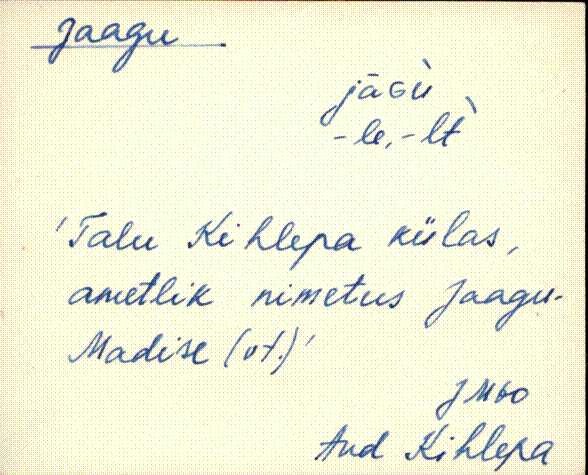 Jaagu
jāGù
-le, -lt̀
'Talu Kihlepa külas,
ametlik nimetus Jaagu-
Madise (vt.)'
JM60
Aud Kihlepa